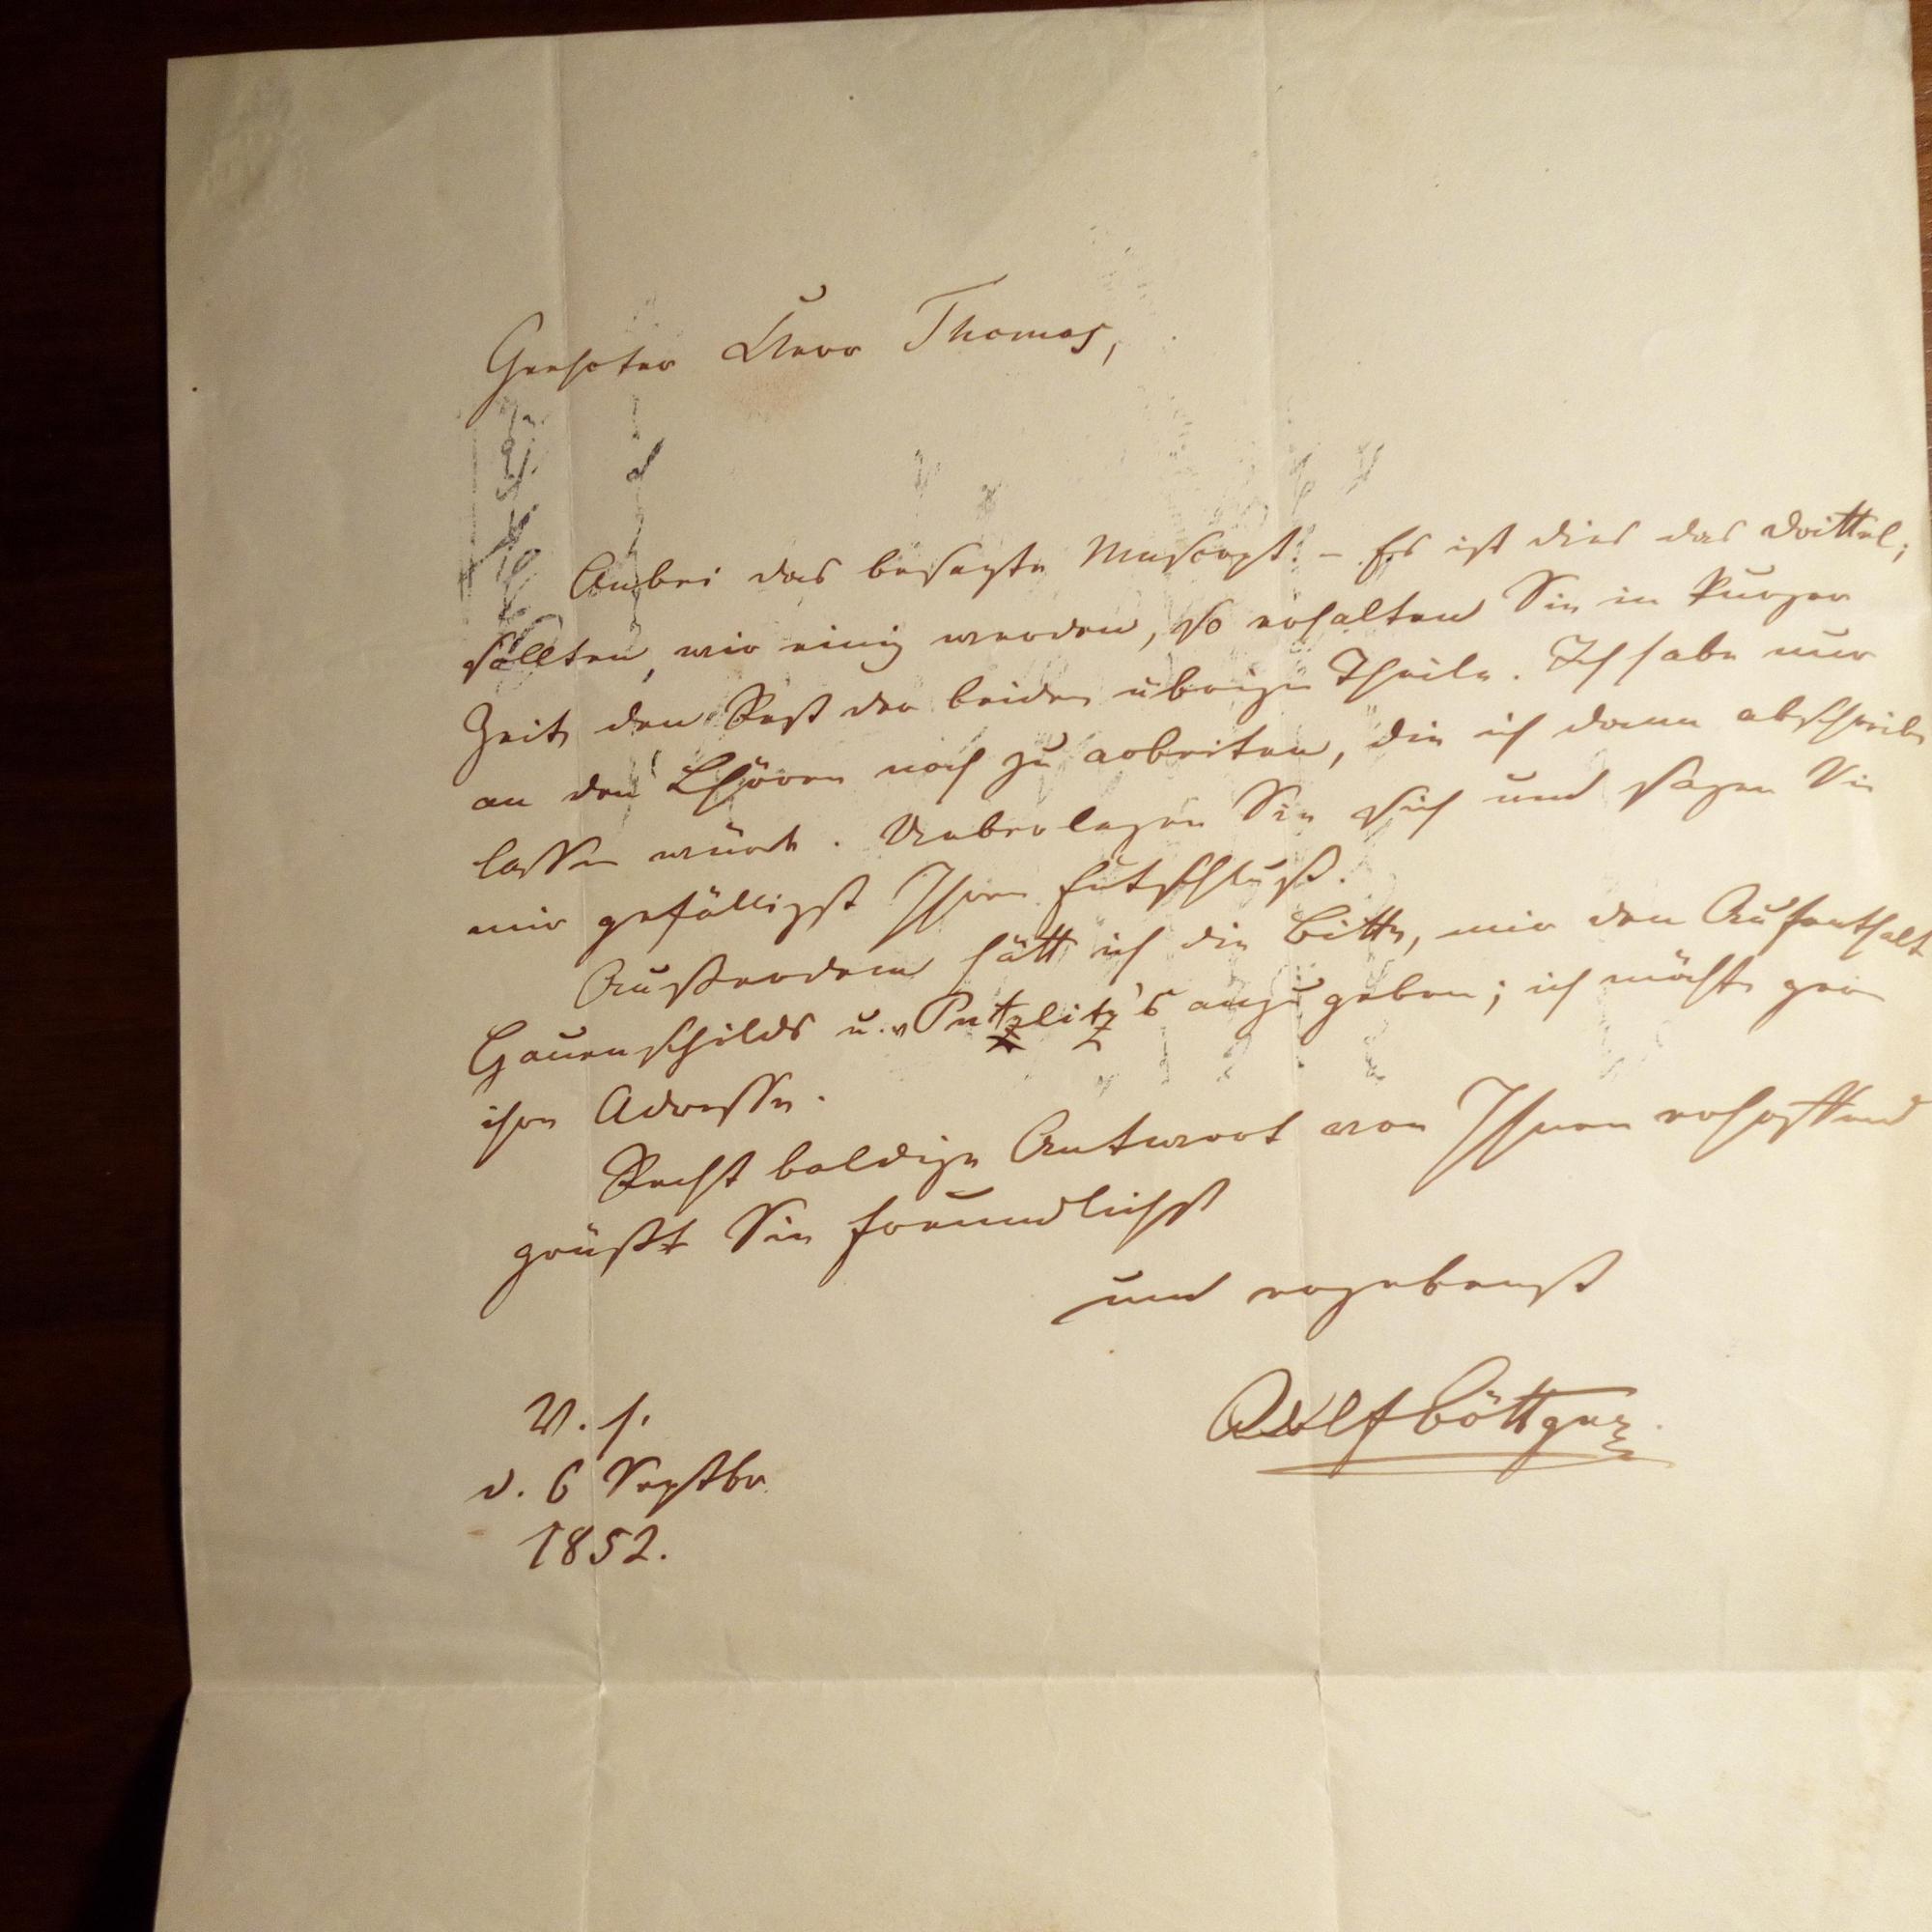 Geehrter Herr Thomas,
Anbei das besagte Muscrpt. – Es ist dies das Drittel;
sollten wir einig werden, so erhalten Sie in kurzer
Zeit den Rest der beiden übrigen Theile. Ich habe nur
an den Chören noch zu arbeiten, die ich dann abschreiben
lassen würde. Ueberlegen Sie sich und sagen Sie
mir gefälligst Ihren Entschluß.
Außerdem hätt ich die Bitte, mir den Aufenthalt
Hauenschilds u. v Putlitz's anzugeben; ich möchte gern
ihre Adresse.
Recht baldige Antwort von Ihnen erhoffend
grüßt Sie freundlichst
und ergebenst
Adolf Böttger.
V. s.
d. 6 Septbr.
1852.